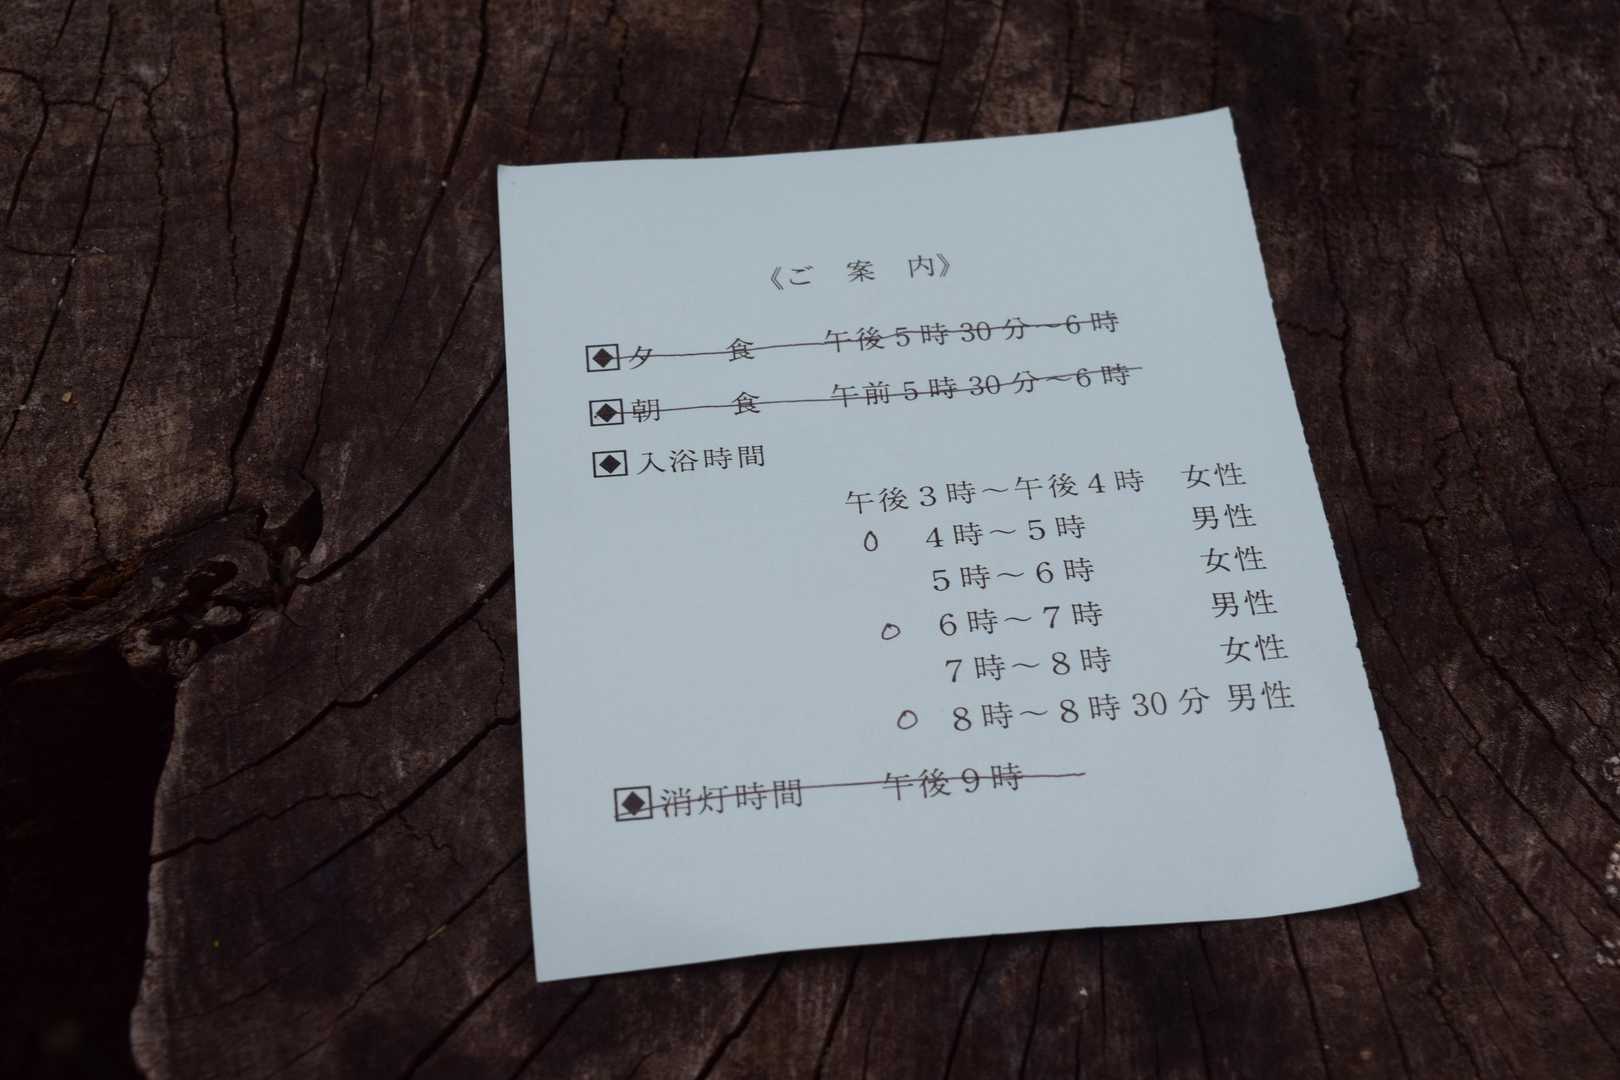 《ご案内》
◆夕食 午後5時30分～6時
◆朝食 午前5時30分～6時
◆入浴時間
午後3時～午後4時 女性
○ 4時～5時 男性
5時～6時 女性
○ 6時～7時 男性
7時～8時 女性
○ 8時～8時30分 男性
◆消灯時間 午後9時